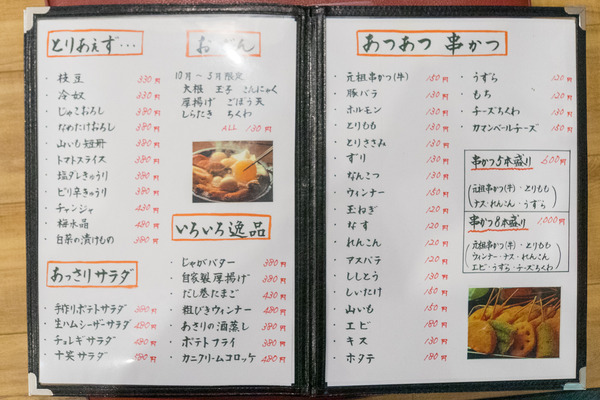 とりあえず…
枝豆 330円
冷奴 330円
じゃこおろし 380円
なめたけおろし 380円
山いも短冊 380円
トマトスライス 380円
塩ダレきゅうり 380円
ピリ辛きゅうり 380円
チャンジャ 430円
梅水晶 480円
白菜の漬けもの 380円
あっさりサラダ
手作りポテトサラダ 380円
生ハムシーザーサラダ 480円
チョレギサラダ 480円
十笑サラダ 480円
おでん
10月〜5月限定
大根 玉子 こんにゃく
厚揚げ ごぼう天
しらたき ちくわ
ALL 130円
いろいろ逸品
じゃがバター 380円
自家製厚揚げ 380円
だし巻たまご 430円
粗びきウィンナー 480円
あさりの酒蒸し 380円
ポテトフライ 380円
カニクリームコロッケ 480円
あつあつ 串かつ
元祖串かつ(牛) 150円
豚バラ 150円
ホルモン 130円
とりもも 130円
とりささみ 130円
ずり 130円
なんこつ 130円
ウィンナー 150円
玉ねぎ 120円
なす 120円
れんこん 120円
アスパラ 120円
ししとう 130円
しいたけ 150円
山いも 150円
エビ 180円
キス 130円
ホタテ 180円
うずら 120円
もち 120円
チーズちくわ 130円
カマンベールチーズ 150円
串かつ5本盛り 600円
(元祖串かつ(牛)・とりもも
ナス・れんこん・うずら)
串かつ8本盛り 1,000円
(元祖串かつ(牛)・とりもも
ウィンナー・ナス・れんこん
エビ・うずら・チーズちくわ)